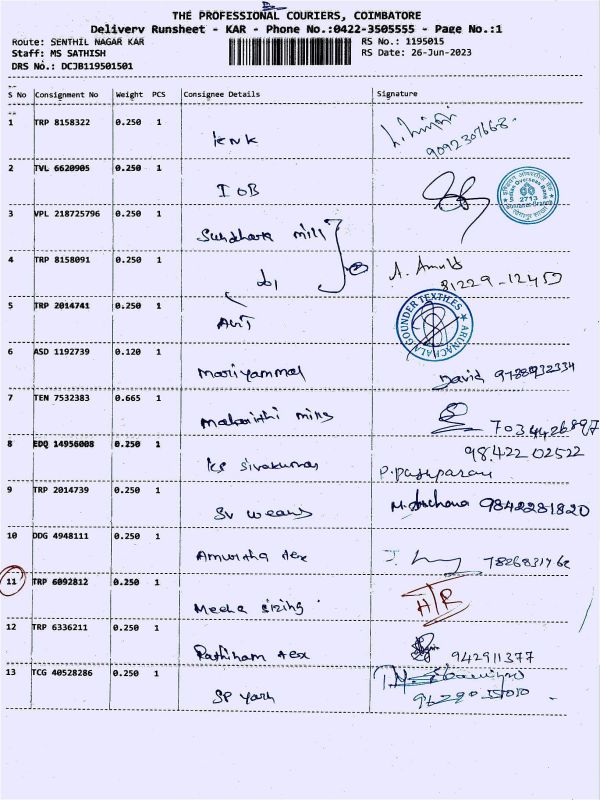 THE PROFESSIONAL COURIERS, COIMBATORE
Delivery Runsheet - KAR - Phone No.:0422-3505555 - Page No.:1
Route: SENTHIL NAGAR KAR RS No.: 1195015
Staff: MS SATHISH RS Date: 26-Jun-2023
DRS No.: DCJB119501501
S No Consignment No Weight PCS Consignee Details Signature
1 TRP 8158322 0.250 1
KNK 9092307668
2 TVL 6620905 0.250 1
IOB
Indian Overseas Bank
2713
3 VPL 218725796 0.250 1
Sundhara mill
4 TRP 8158091 0.250 1
do A. Amul 81229-12450
5 TRP 2014741 0.250 1
AVT
ARUNACHALA GOUNDER TEXTILES
6 ASD 1192739 0.120 1
Mariyammal David 9788932334
7 TEN 7532383 0.665 1
mills 7034426897
8 EDQ 14956008 0.250 1 98422 02522
KS Sivakumar
9 TRP 2014739 0.250 1
SV wears M. Archana 9842281820
10 DDG 4948111 0.250 1
Amurtha tex 7826831762
11 TRP 6092812 0.250 1
Meeka sizing H/R
12 TRP 6336211 0.250 1
Rathiham tex 942911377
13 TCG 40528286 0.250 1
SP yarn